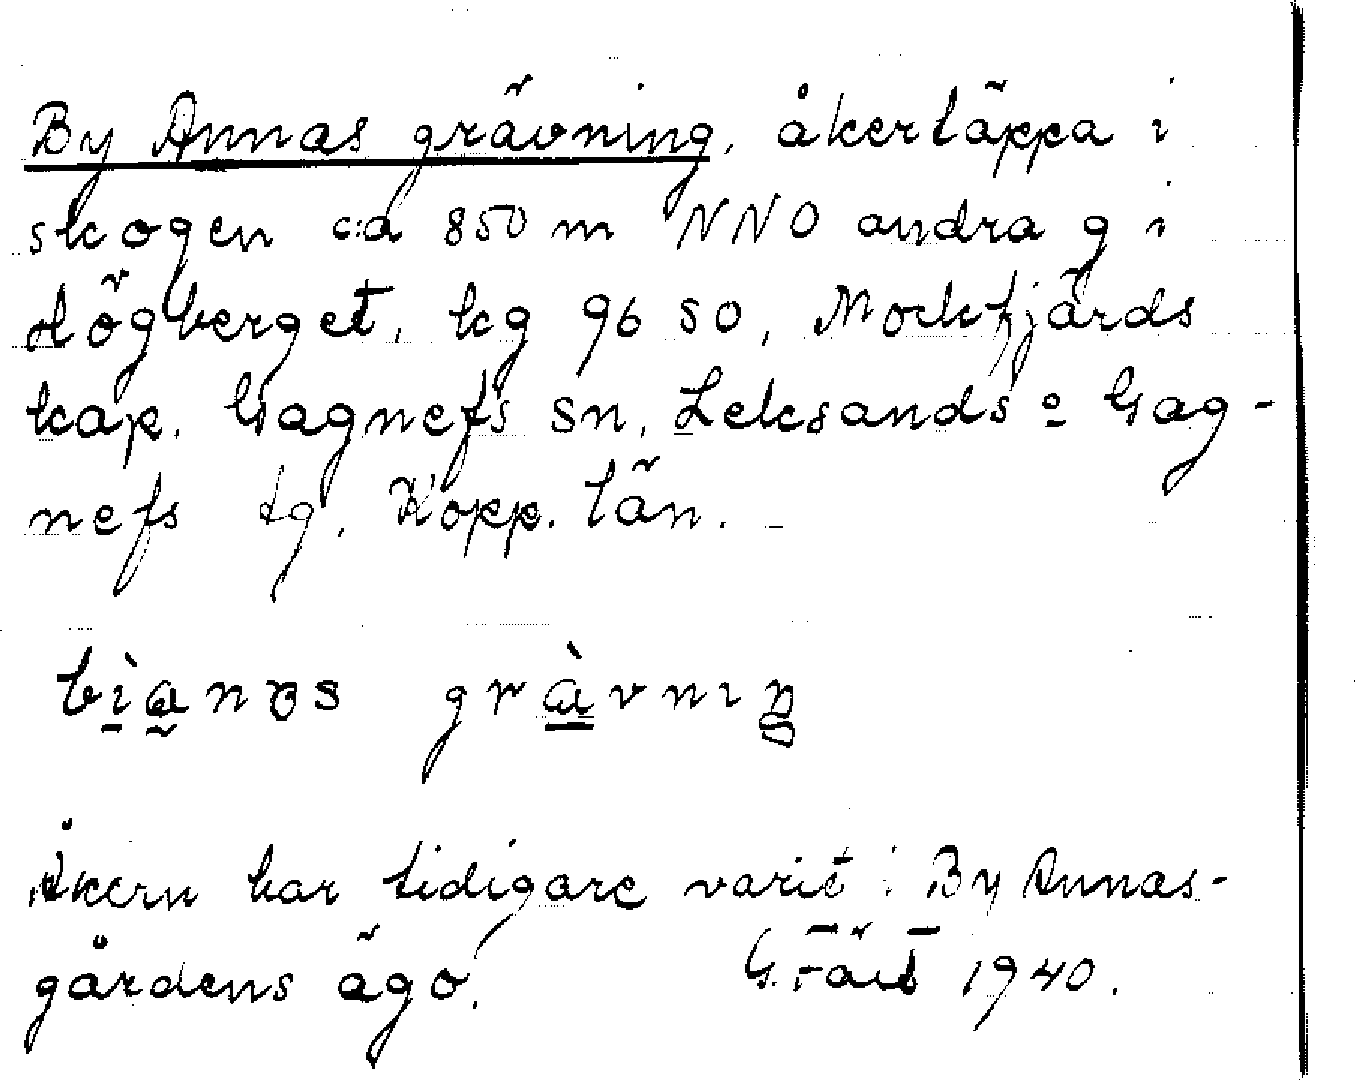 By Annas grävning, åkertäppa i
skogen c:a 850 m NNO andra g i
Högberget, kg 96 SO, Mockfjärds
kap. Gagnefs sn, Leksands o Gag-
nefs tg. Kopp. län.
grävning
Åkern har tidigare varit i By Annas-
gårdens ägo.
G. 1940.